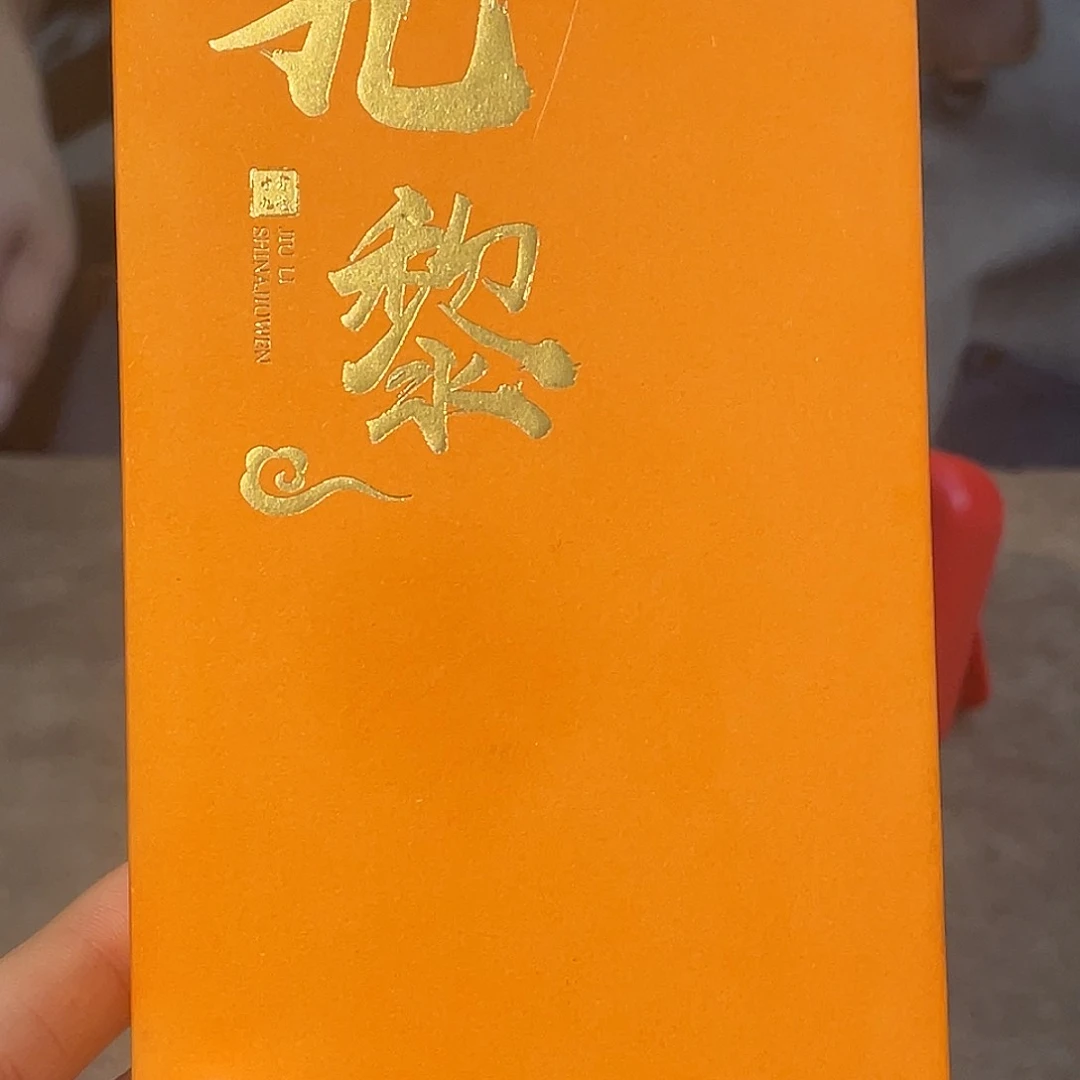 九黎
JIU LI
SHINAJIUWEN